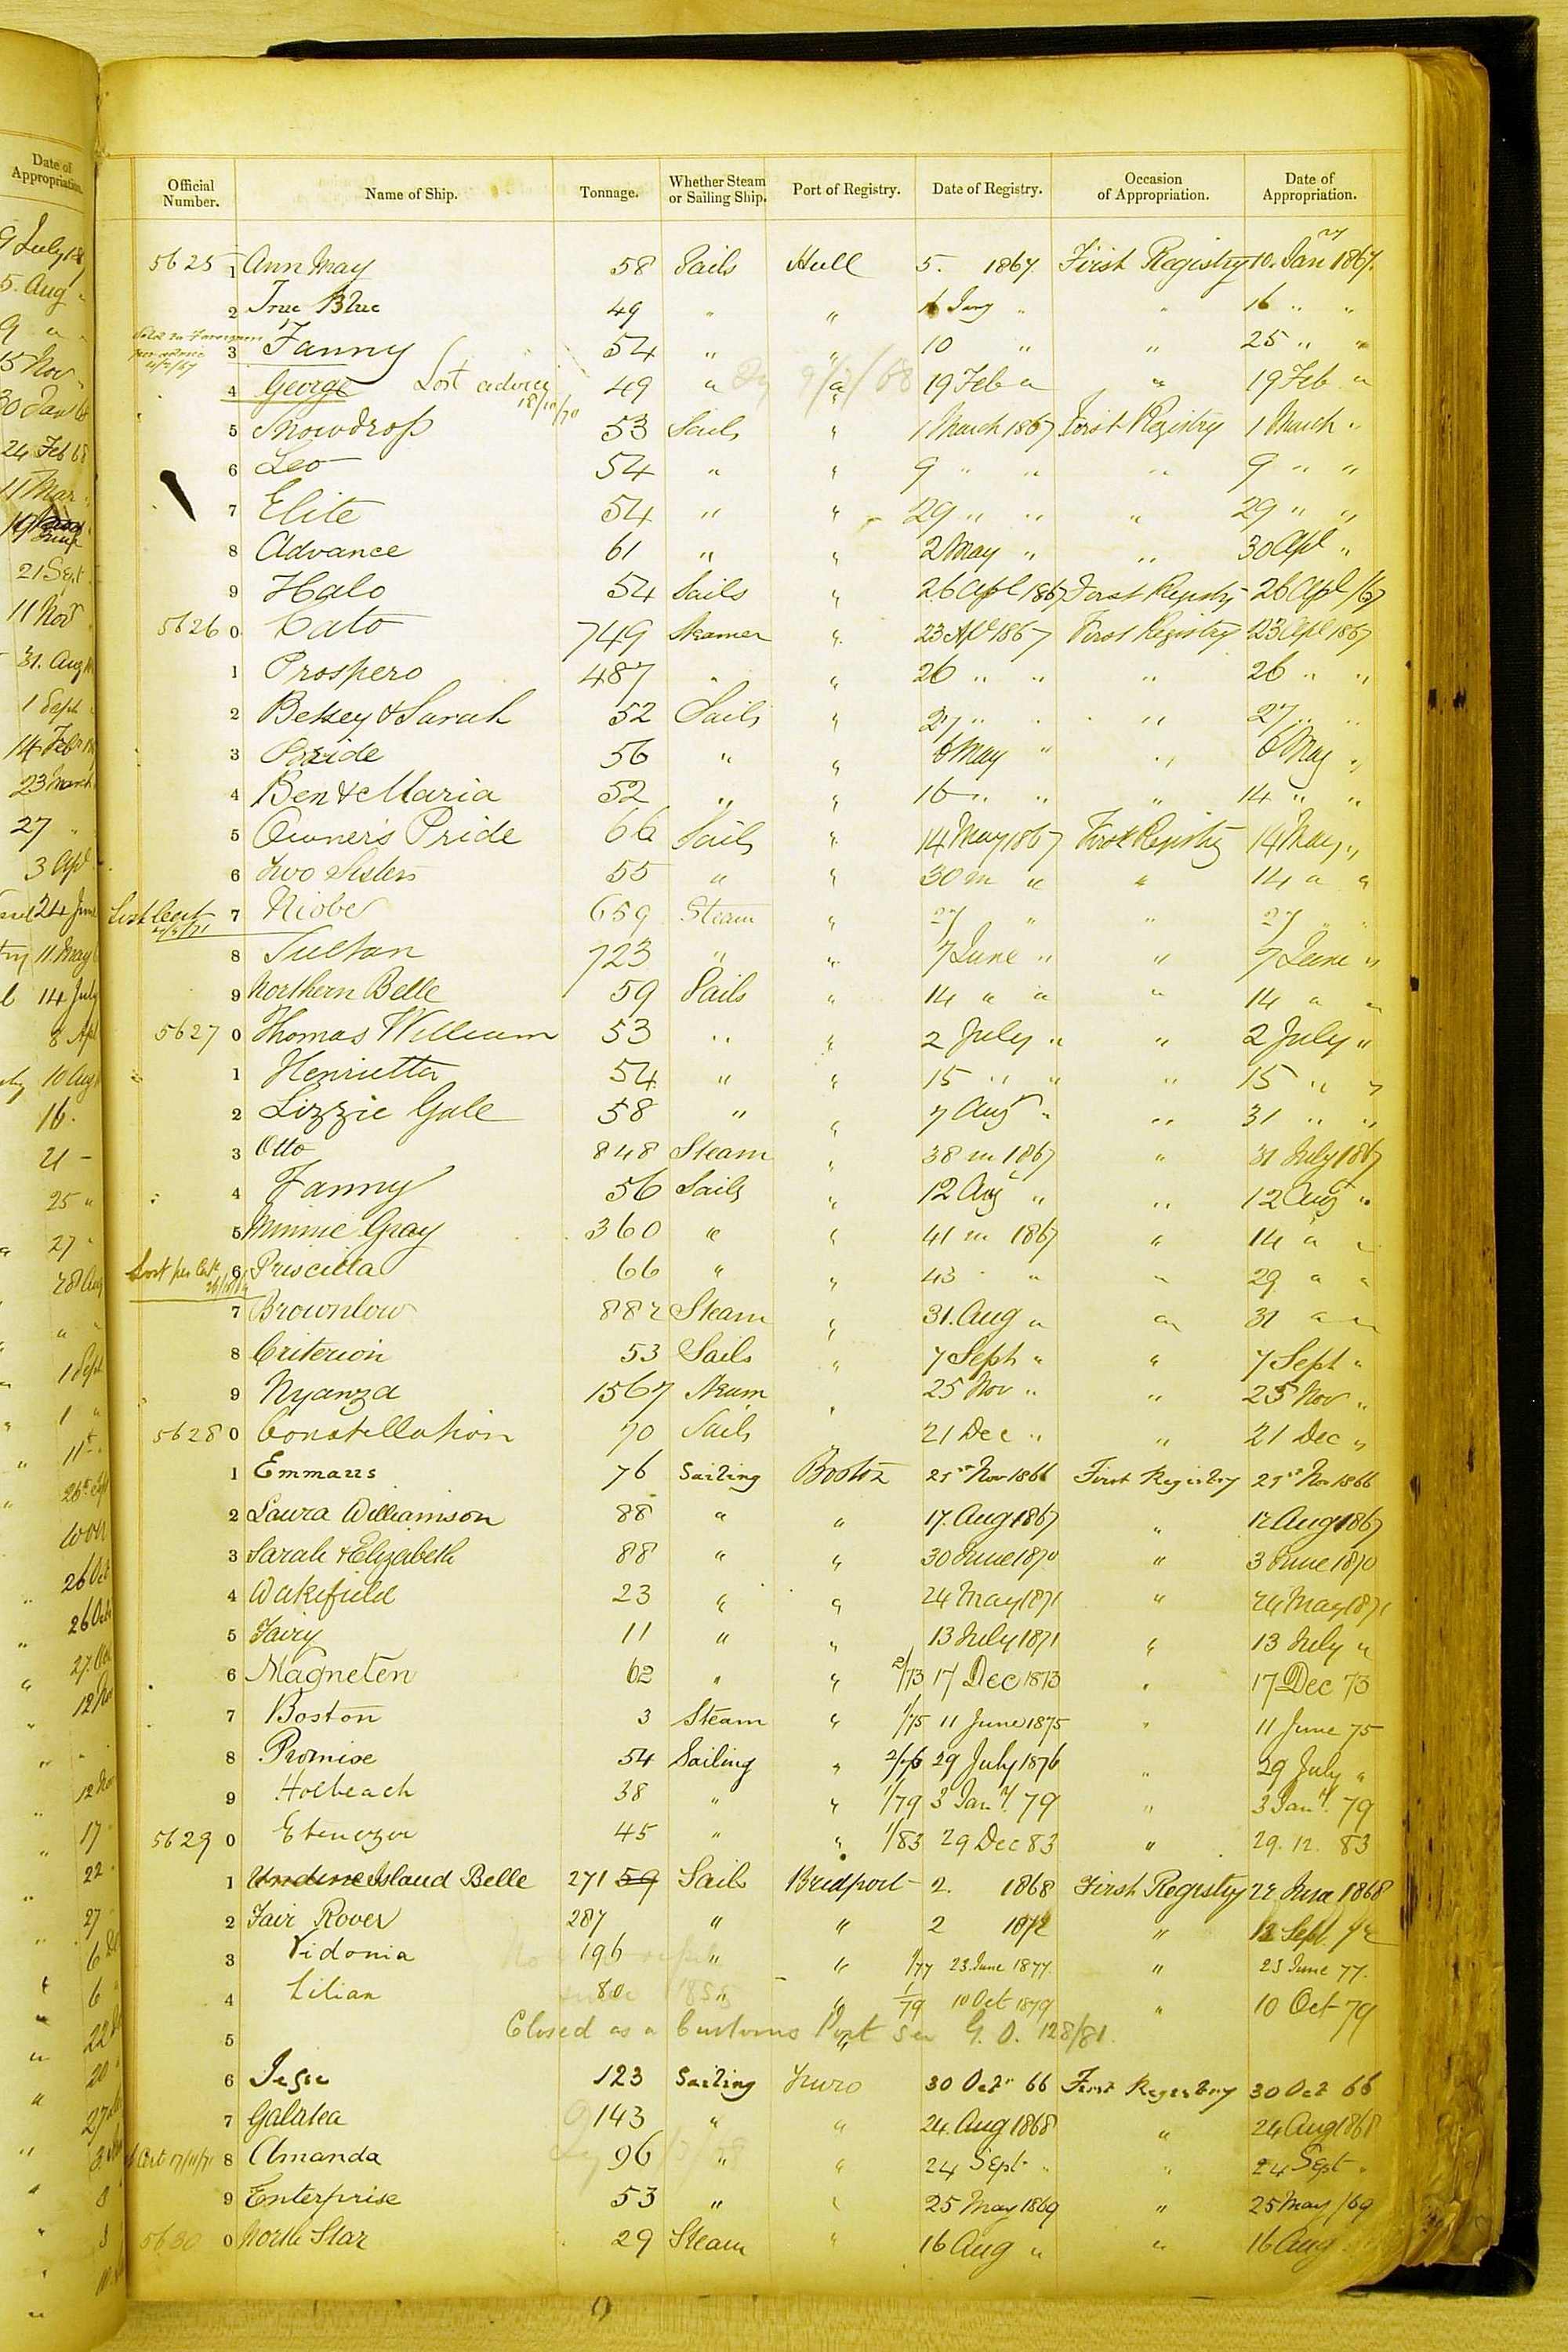 Date of
Appropriation.
Official Number. Name of Ship. Tonnage. Whether Steam or Sailing Ship. Port of Registry. Date of Registry. Occasion of Appropriation. Date of Appropriation.
5625 1 Ann May 58 Sails Hull 5. 1867 First Registry 10. Jany 1867.
2 True Blue 49 " " 16 Jany " " 16 " "
3 Fanny 54 " " 10 " " 25 " "
4 George Lost advice 18/10/70 49 " " 19 Feb " " 19 Feb "
5 Snowdrop 53 Sails " 1 March 1867 First Registry 1 March "
6 Leo 54 " " 9 " " " 9 " "
7 Elite 54 " " 29 " " " 29 " "
8 Advance 61 " " 2 May " " 30 Apl "
9 Halo 54 Sails " 26 Apl 1867 First Registry 26 Apl /67
5626 0 Cato 749 Steamer " 23 Apl 1867 First Registry 23 Apl 1867
1 Prospero 487 " " 26 " " " 26 " "
2 Betsey & Sarah 52 Sails " 27 " " " 27 " "
3 Pride 56 " " 6 May " " 6 May "
4 Ben & Maria 52 " " 16 " " " 14 " "
5 Owner's Pride 66 Sails " 14 May 1867 First Registry 14 May "
6 Two Sisters 55 " " 30 in " " 14 " "
Lost Cert 7 Niobe 659 Steam " 27 " " 27 " "
8 Sultan 723 " " 7 June " " 7 June "
9 Northern Belle 59 Sails " 14 " " " 14 " "
5627 0 Thomas William 53 " " 2 July " " 2 July "
1 Henrietta 54 " " 15 " " " 15 " "
2 Lizzie Gale 58 " " 7 Aug " " 31 " "
3 Otto 848 Steam " 38 in 1867 " 31 July 1867
4 Fanny 56 Sails " 12 Aug " " 12 Aug "
5 Minnie Gray 360 " " 41 in 1867 " 14 " "
Lost per Cert 6 Priscilla 66 " " 43 " " 29 " "
7 Brownlow 882 Steam " 31. Aug " " 31 " "
8 Criterion 53 Sails " 7 Sept " " 7 Sept "
9 Nyanza 1567 Steam " 25 Nov " " 25 Nov "
5628 0 Constellation 70 Sails " 21 Dec " " 21 Dec "
1 Emmaus 76 Sailing Boston 21st Nov 1866 First Registry 21st Nov 1866
2 Laura Williamson 88 " " 17. Aug 1867 " 17 Aug 1867
3 Sarah & Elizabeth 88 " " 30 June 1870 " 3 June 1870
4 Wakefield 23 " " 24 May 1871 " 24 May 1871
5 Fairy 11 " " 13 July 1871 " 13 July "
6 Magneten 62 " " 2/73 17 Dec 1873 " 17 Dec 73
7 Boston 3 Steam " 1/75 11 June 1875 " 11 June 75
8 Promise 54 Sailing " 2/76 29 July 1876 " 29 July "
9 Holbeach 38 " " 1/79 3 Jany. 79 " 3 Jany. 79
5629 0 Ebenezer 45 " " 1/83 29 Dec 83 " 29. 12. 83
1 Undine Island Belle 271 59 Sails Bridport 2. 1868 First Registry 22 June 1868
2 Fair Rover 287 " " 2 1872 " 12 Sept. 72
3 Vidonia 196 " " 1/77 23. June 1877. " 23 June 77.
4 Lilian 80 " " 1/79 10 Oct 1879 " 10 Oct 79
5 Closed as a Customs Port see G. O. 128/81.
6 Jesse 123 Sailing Truro 30 Octr 66 First Registry 30 Oct 66
7 Galatea 143 " " 24. Aug 1868 " 24 Aug 1868
Cert 17/11/71 8 Amanda 96 " " 24 Sept " " 24 Sept "
9 Enterprise 53 " " 25 May 1869 " 25 May /69
5630 0 North Star 29 Steam " 16 Aug " " 16 Aug